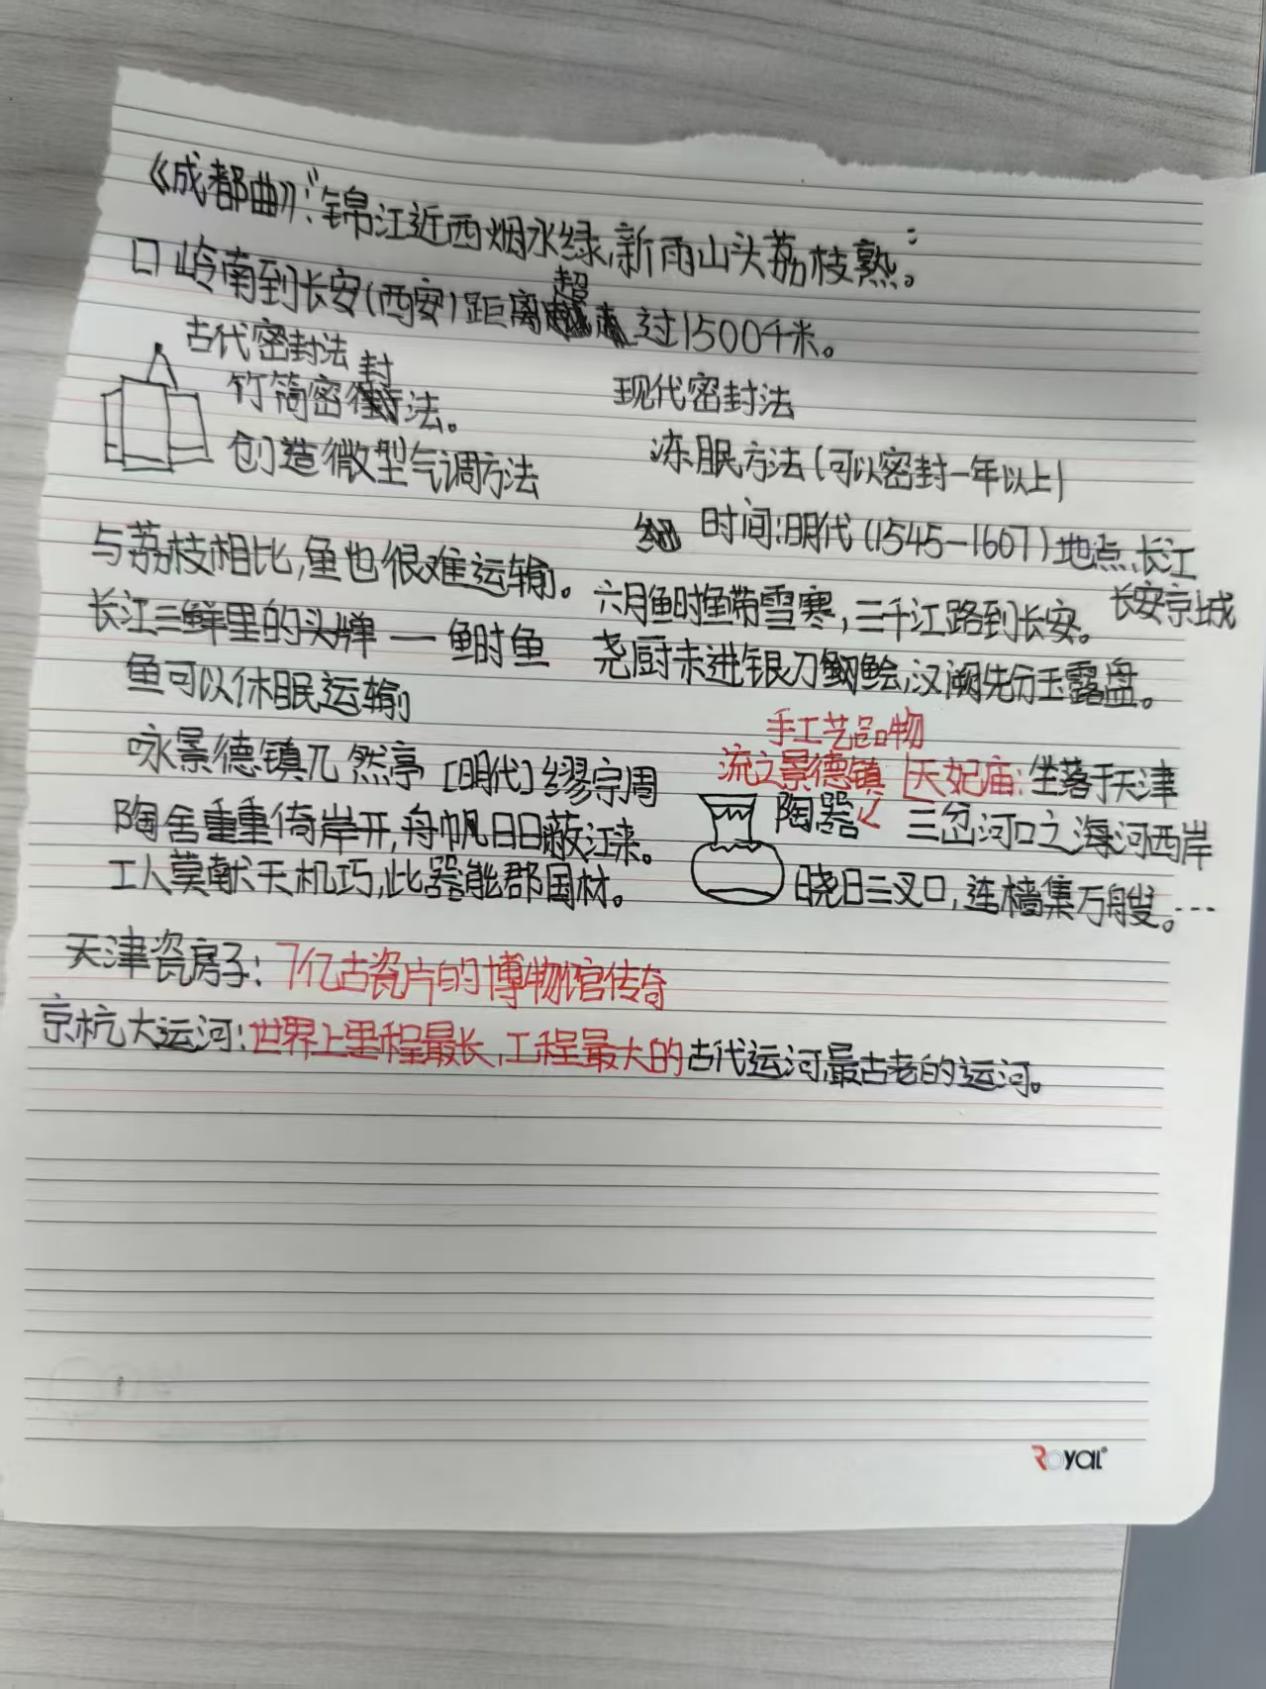 《成都曲》:“锦江近西烟水绿,新雨山头荔枝熟。”
口岭南到长安(西安)距离超过1500千米。
古代密封法
竹筒密封法。
创造微型气调方法
现代密封法
冻眠方法(可以密封一年以上)
与荔枝相比,鱼也很难运输。
长江三鲜里的头牌——鲥鱼
鱼可以休眠运输
时间:明代(1545-1607)地点:长江
长安京城
六月鲥鱼带雪寒,三千江路到长安。
尧厨未进银刀鲙,汉阙先分玉露盘。
咏景德镇兀然亭[明代]缪宗周
陶舍重重倚岸开,舟帆日日蔽江来。
工人莫献天机巧,此器能郡国材。
手工艺品物
流之景德镇
陶器
天妃庙:坐落于天津
三岔河口之海河西岸
晓日三叉口,连樯集万艘。…
天津瓷房子:7亿古瓷片的博物馆传奇
京杭大运河:世界上里程最长,工程最大的古代运河,最古老的运河。
Royal